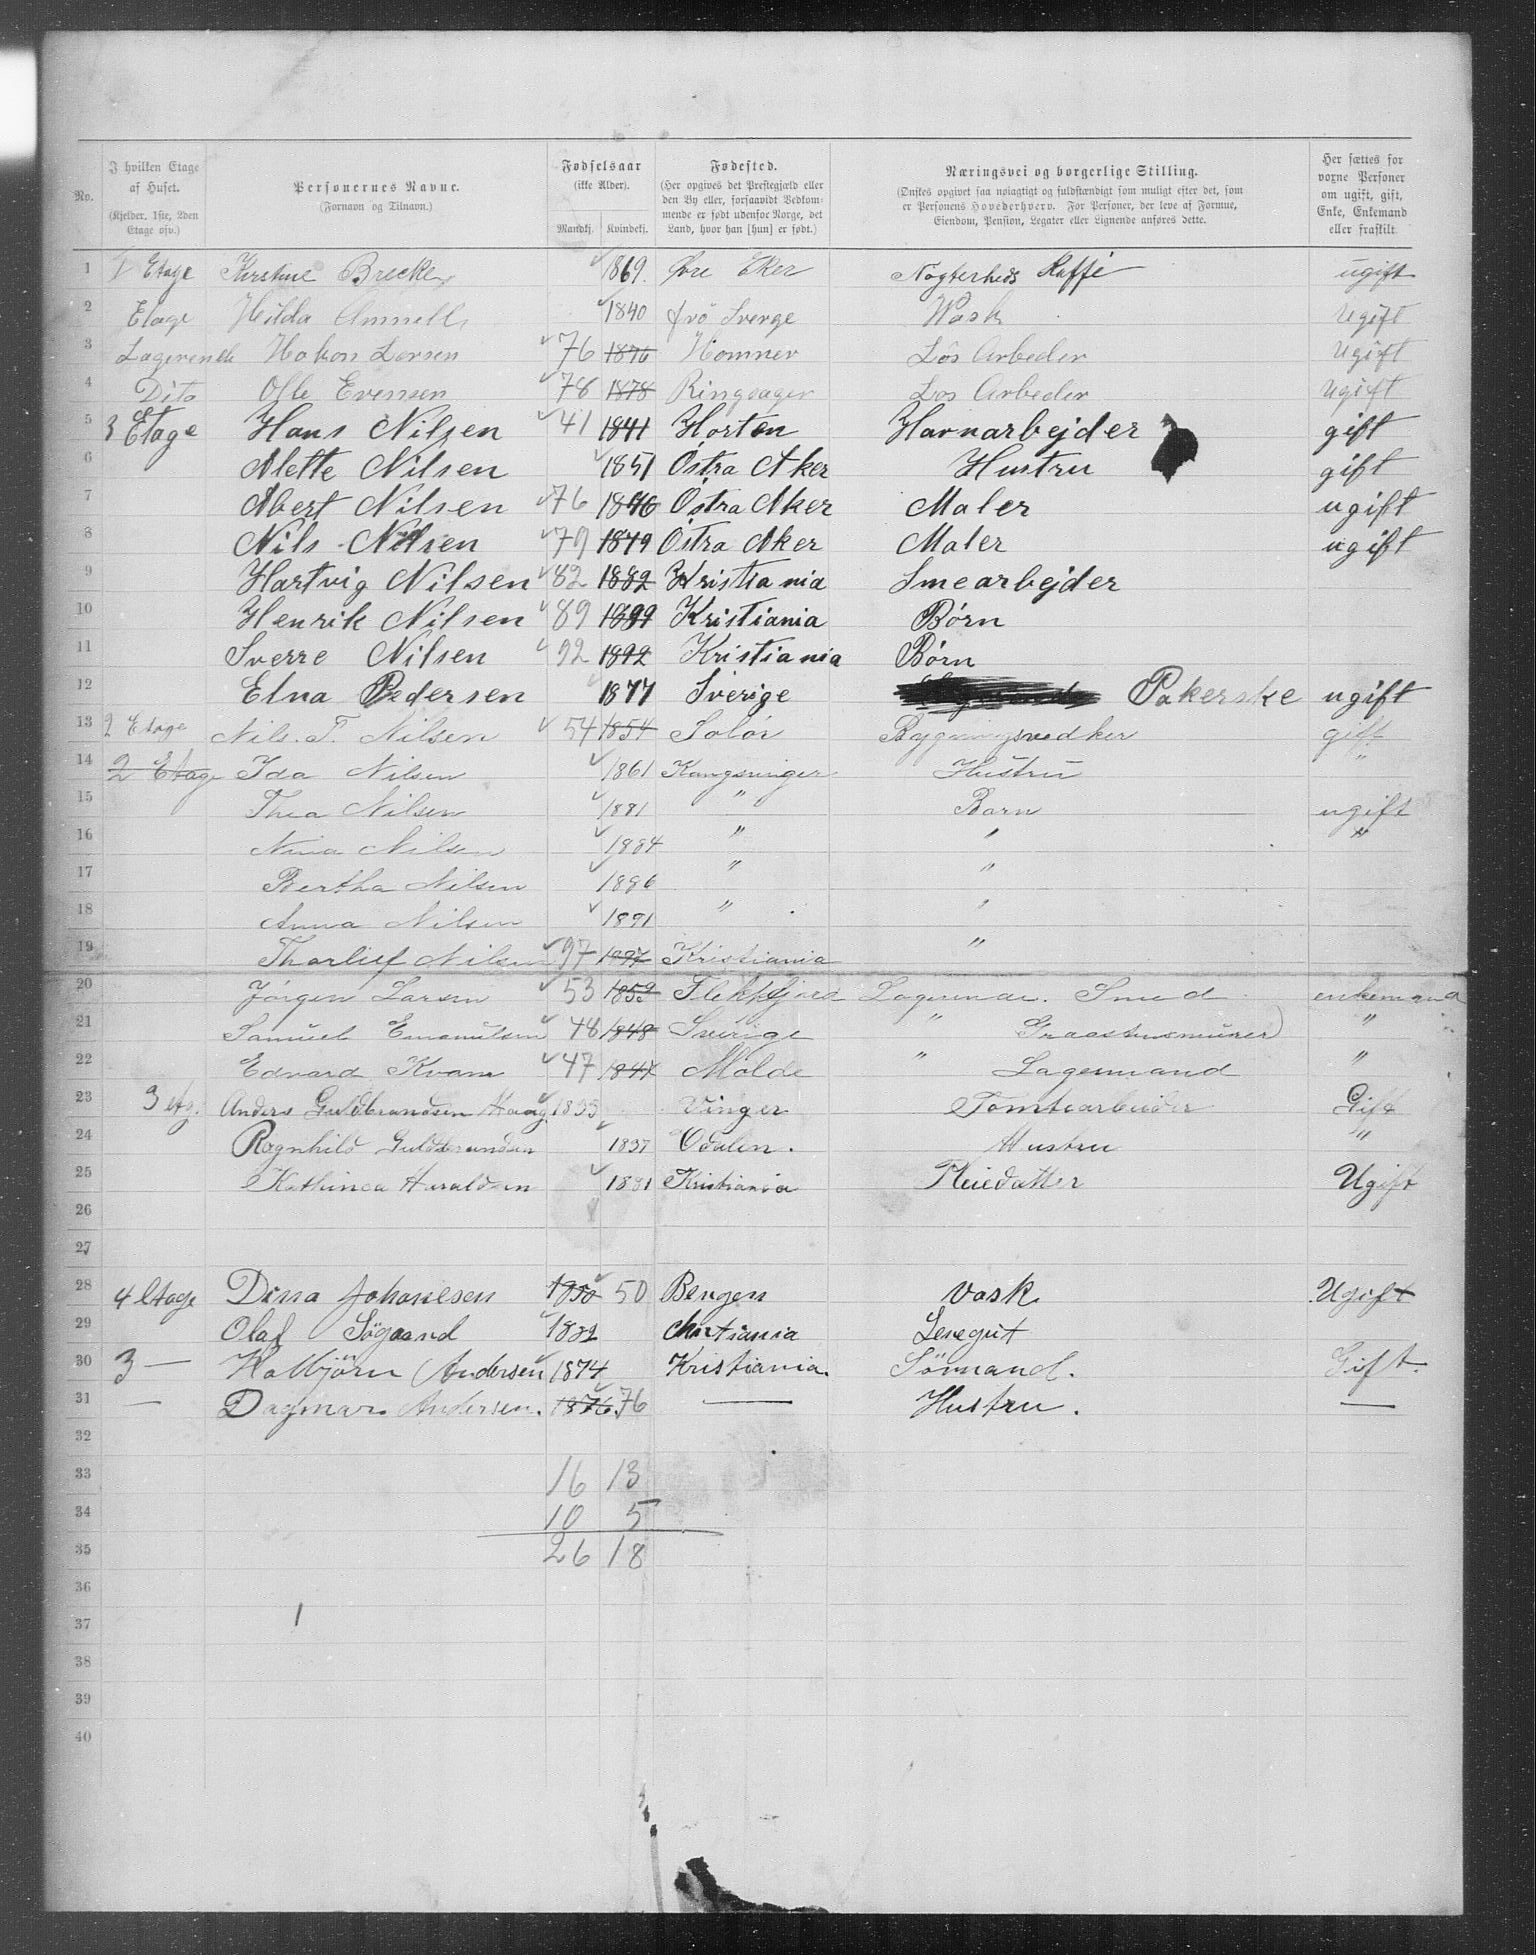 No. | I hvilken Etage af Huset. (Kjelder, 1ste, 2den Etage osv.) | Personernes Navne. (Fornavn og Tilnavn.) | Fødselsaar (ikke Alder). Mandkj. Kvindekj. | Fødested. (Her opgives det Prestegjæld eller den By eller, forsaavidt Vedkommende er født udenfor Norge, det Land, hvor han [hun] er født.) | Næringsvei og borgerlige Stilling. (Ønskes opgivet saa nøiagtigt og fuldstændigt som muligt efter det, som er Personens Hovederhverv. For Personer, der leve af Formue, Eiendom, Pension, Legater eller Lignende anføres dette.) | Her sættes for voxne Personer om ugift, gift, Enke, Enkemand eller fraskilt.
1 Etage Kirstine Brecke 1869. Øvre Eker Nøgterheds Kaffé ugift
2 Etage Hilda 1840 Sverge Wask Ugift
3 Lagerende Hakon Larsen 76 1876 Homner Løs Arbeder Ugift
4 Dito Olle Evensen 78 1878 Ringsager Los Arbeder Ugift
5 3 Etage Hans Nilsen 41 1841 Horten Havnarbejder gift
6 Alette Nilsen 1851 Östra Aker Hustru gift
7 Albert Nilsen 76 1876 Östra Aker Maler ugift
8 Nils Nilsen 79 1879 Östra Aker Maler ugift
9 Hartvig Nilsen 82 1882 Kristiania Smearbejder
10 Henrik Nilsen 89 1889 Kristiania Børn
11 Sverre Nilsen 92 1892 Kristiania Børn
12 Elna Pedersen 1877 Sverige Pakerske ugift
13 2 Etage Nils. T. Nilsen 54 1854 Solör Bygningsvedker gift
14 2 Etage Ida Nilsen 1861 Kongsvinger Hustru "
15 Thea Nilsen 1881 " Barn ugift
16 Nina Nilsen 1884 " " "
17 Bertha Nilsen 1886 " "
18 Anna Nilsen 1891 " "
19 Thorlief Nilsen 97 1897 Kristiania "
20 Jörgen Larsen 53 1853 Flekkfjord Lagerende. Smed enkemand
21 Samuel Emanulsen 48 1848 Sverige " Graastensmurer "
22 Edvard Kvam 47 1847 Molde " Lagermand "
23 3 etg. Anders Guldbrandsen Haag 1833 Vinger Tomtearbeider Gift
24 Ragnhild Guldbrandsen 1837 Odalen. Hustru "
25 Kathinca Haraldsen 1881 Kristiania Pleiedatter Ugift
26
27
28 4 Etage Dina Johanesen 1850 50 Bergen Vask Ugift
29 Olaf Sögaard 1882 Christiania Lesegut
30 3 — Kolbjörn Andersen 1874 Kristiania. Sömand. Gift.
31 — Dagmar Andersen. 1876. 76 — Hustru. —
32
33 16 13
34 10 5
35 26 18
36
37 1
38
39
40